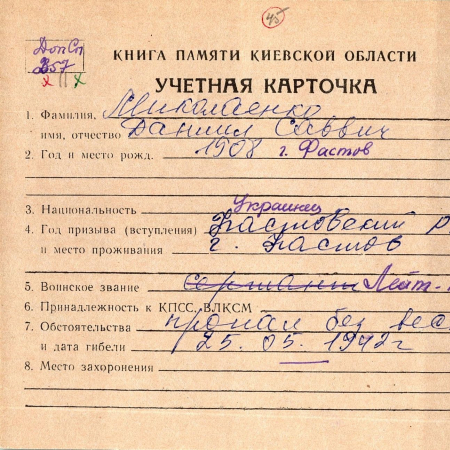 45
ДопСп
357
КНИГА ПАМЯТИ КИЕВСКОЙ ОБЛАСТИ
УЧЕТНАЯ КАРТОЧКА
1. Фамилия, Миколаенко
имя, отчество Даниил Саввич
2. Год и место рожд. 1908 г. Фастов
3. Национальность Украинец
4. Год призыва (вступления) Фастовский р
и место проживания г. Фастов
5. Воинское звание сержант Лейт-
6. Принадлежность к КПСС, ВЛКСМ
7. Обстоятельства пропал без вес
и дата гибели 25.05.1942г
8. Место захоронения